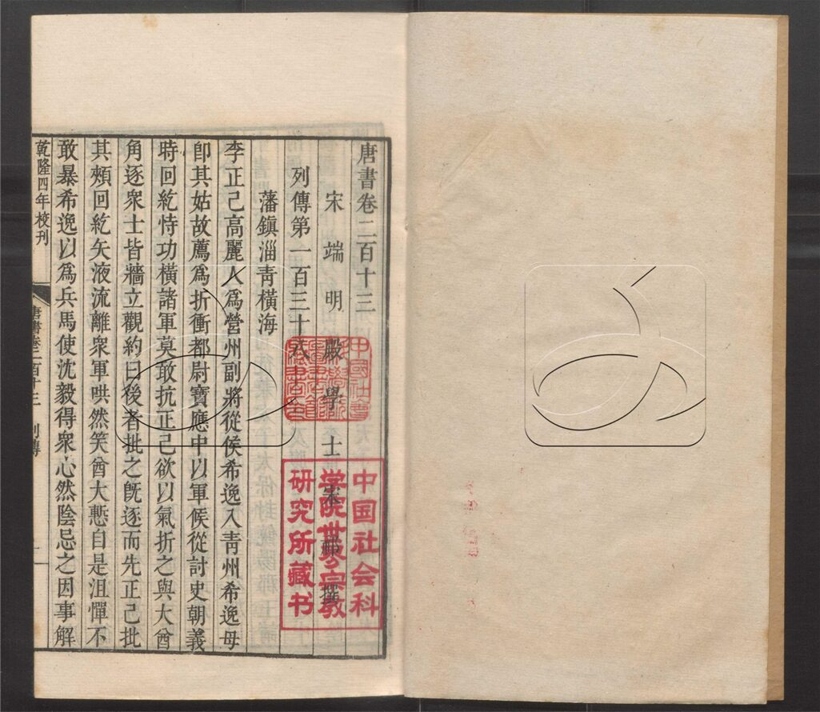 唐書卷二百十三
宋端明殿學士宋祁撰
列傳第一百三十八
藩鎮淄青橫海
李正己高麗人為營州副將從侯希逸入青州希逸母
即其姑故薦為折衝都尉寶應中以軍候從討史朝義
時回紇恃功橫諸軍莫敢抗正己欲以氣折之與大酋
角逐衆士皆牆立觀約曰後者批之既逐而先正己批
其頰回紇矢液流離衆軍哄然笑酋大慙自是沮憚不
敢暴希逸以為兵馬使沈毅得衆心然陰忌之因事解
乾隆四年校刊
唐書卷二百十三
列傳
一
中国社会科
学院世界宗教
研究所藏书